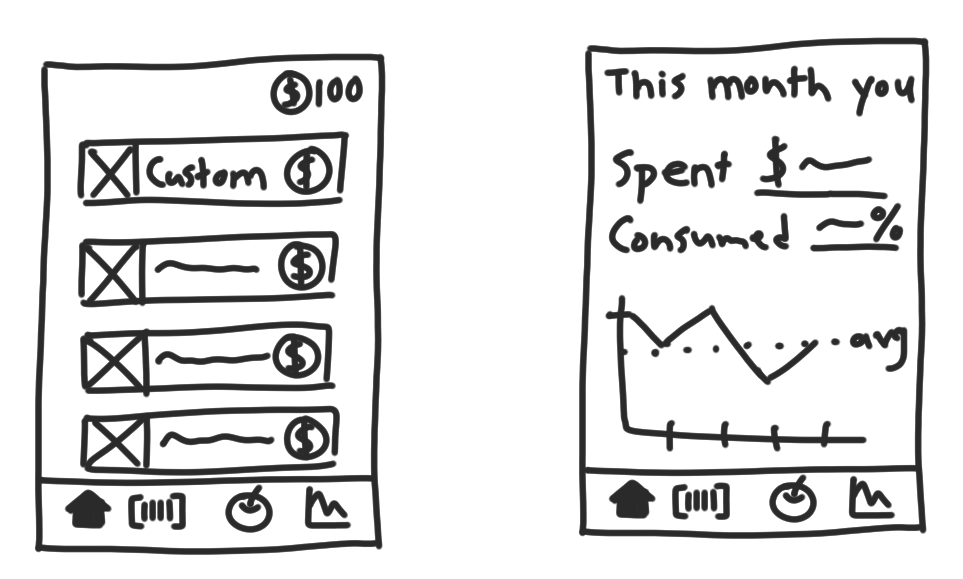 $100
Custom $
$
$
$
This month you
Spent $
Consumed %
avg